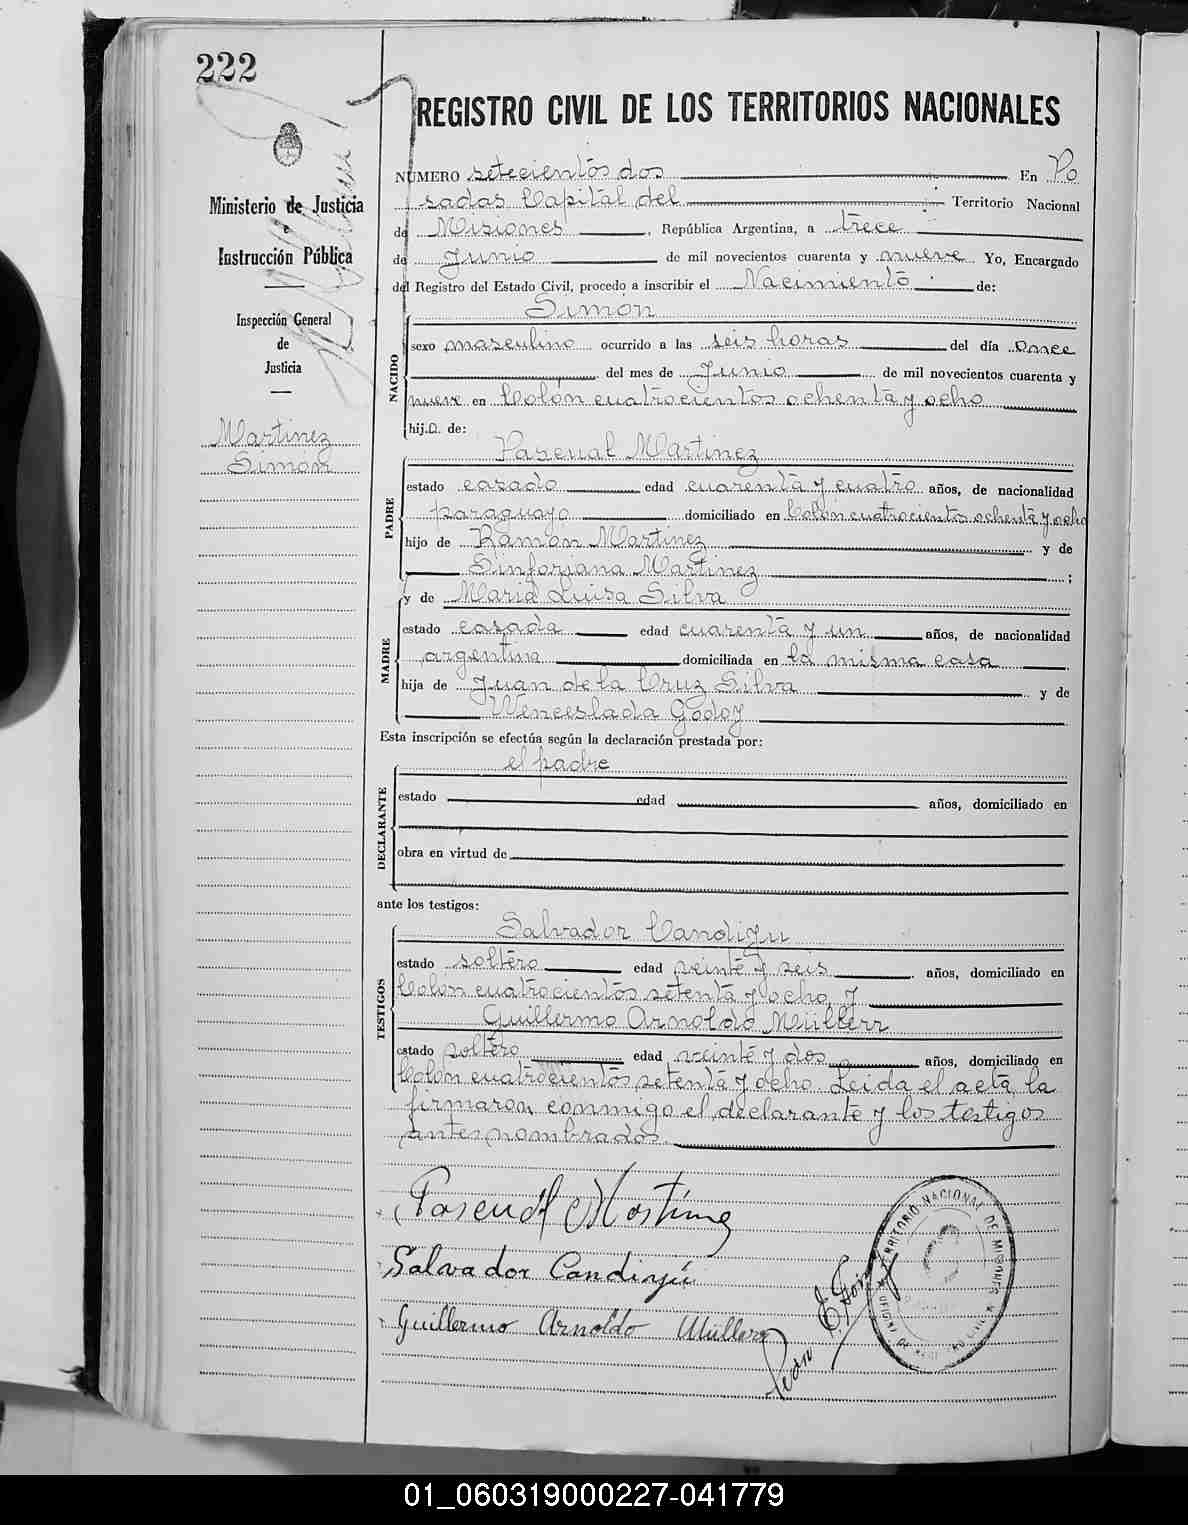 222
REGISTRO CIVIL DE LOS TERRITORIOS NACIONALES
Ministerio de Justicia
e
Instrucción Pública
Inspección General
de
Justicia
Martinez
Simón
NÚMERO setecientos dos En Po
sadas Capital del Territorio Nacional
de Misiones, República Argentina, a trece
de Junio de mil novecientos cuarenta y nueve Yo, Encargado
del Registro del Estado Civil, procedo a inscribir el Nacimiento de:
Simón
NACIDO
sexo masculino ocurrido a las seis horas del día once
del mes de Junio de mil novecientos cuarenta y
nueve en Colón cuatrocientos ochenta y ocho
hij.o. de:
Pascual Martinez
PADRE
estado casado edad cuarenta y cuatro años, de nacionalidad
paraguayo domiciliado en Colón cuatrocientos ochenta y ocho
hijo de Ramón Martinez y de
Sinforiana Martinez;
y de Maria Luisa Silva
MADRE
estado casada edad cuarenta y un años, de nacionalidad
argentina domiciliada en la misma casa
hija de Juan de la Cruz Silva y de
Wenceslada Godoy
Esta inscripción se efectúa según la declaración prestada por:
el padre
DECLARANTE
estado edad años, domiciliado en
obra en virtud de
ante los testigos:
Salvador Candiyu
TESTIGOS
estado soltero edad veinte y seis años, domiciliado en
Colón cuatrocientos setenta y ocho y
Guillermo Arnoldo Müllerr
estado soltero edad veinte y dos años, domiciliado en
Colón cuatrocientos setenta y ocho. Leida el acta, la
firmaron conmigo el declarante y los testigos
antes nombrados.
Pascual Martinez
Salvador Candiyú
Guillermo Arnoldo Müllerr
TERRITORIO NACIONAL DE MISIONES
01_060319000227-041779